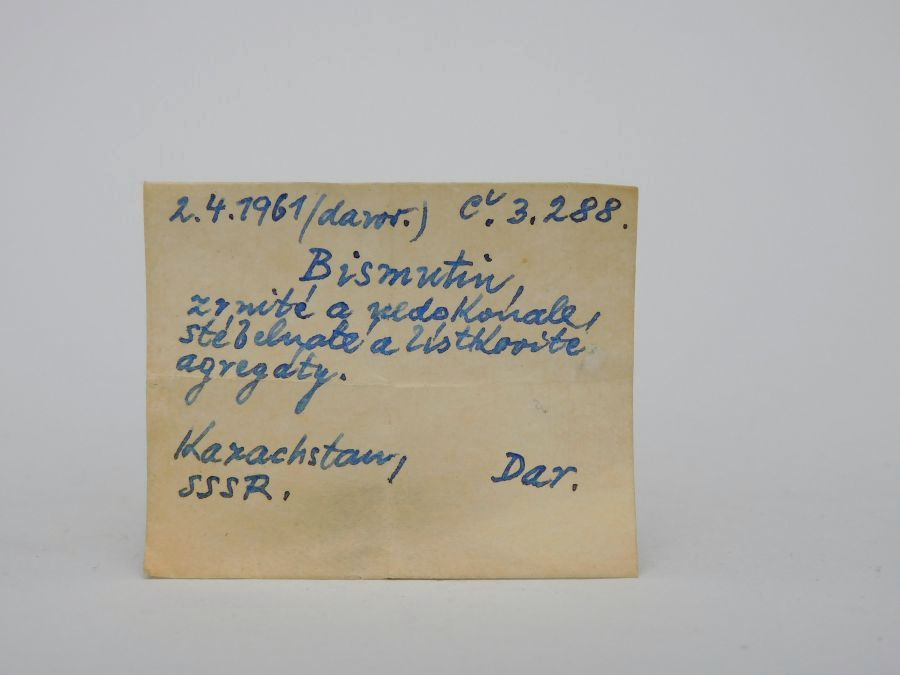 2.4.1961 (darov.) Č. 3.288.
Bismutin,
zrnité a nedokonale,
stébelnaté a lístkovité
agregáty.
Kazachstan,
SSSR.
Dar.